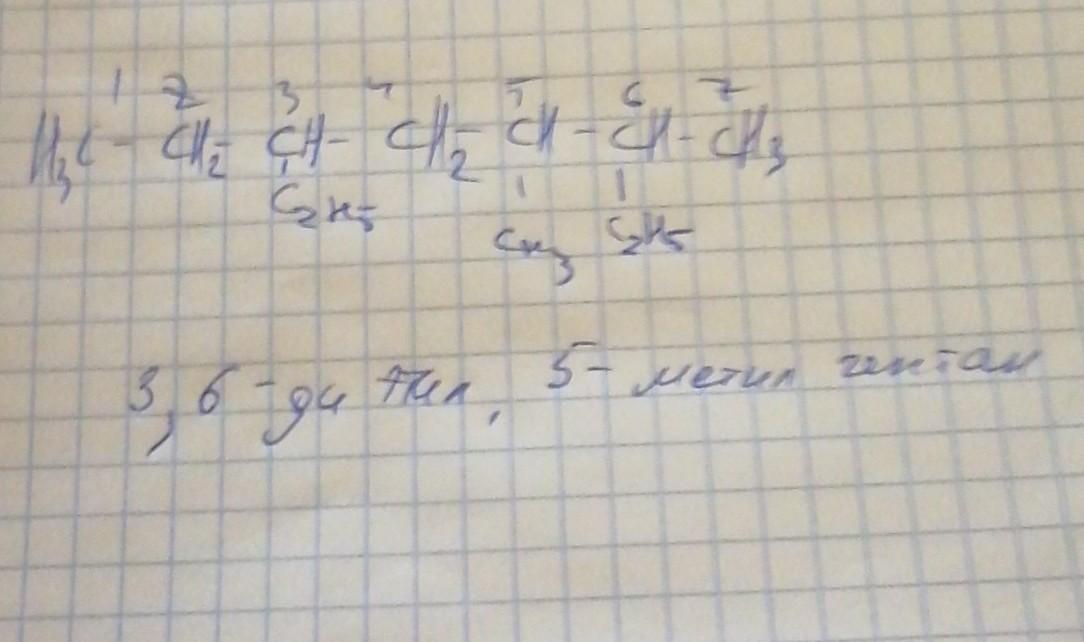 1 2 3 4 5 6 7
H₃C - CH₂ - CH - CH₂ - CH - CH - CH₃
C₂H₅ CH₃ C₂H₅
3, 6 - ди этил, 5 - метил гептан